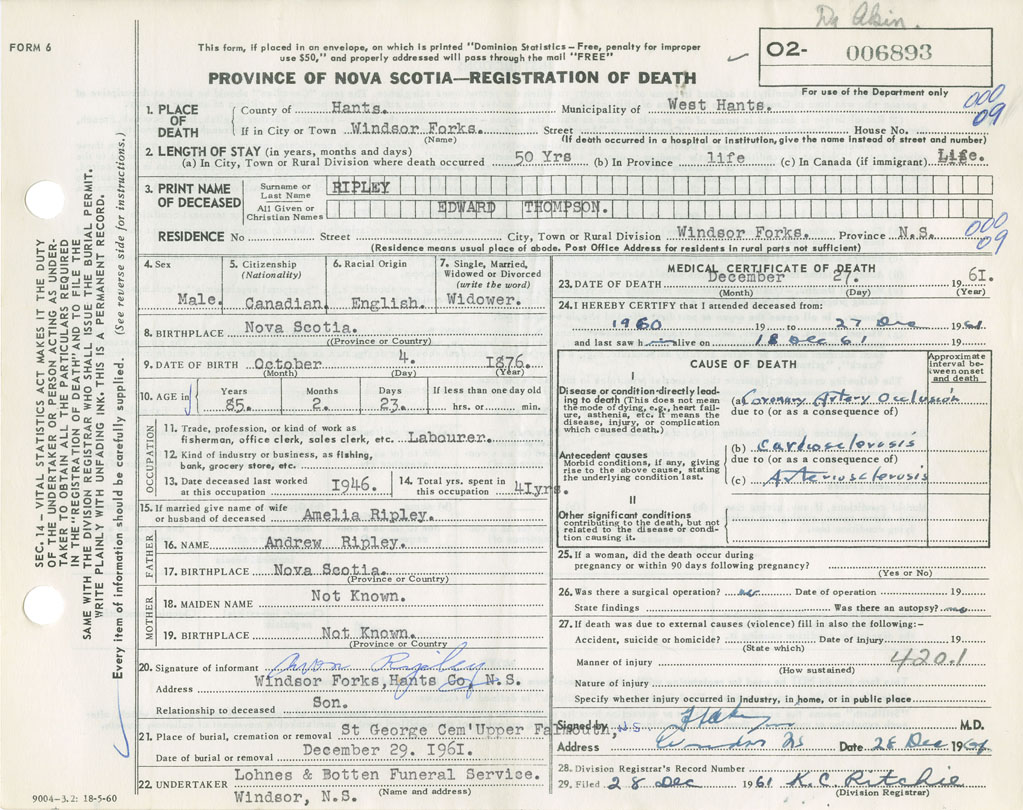 Dr Akin.
FORM 6
This form, if placed in an envelope, on which is printed "Dominion Statistics – Free, penalty for improper
use $50," and properly addressed will pass through the mail "FREE"
O2- 006893
For use of the Department only
PROVINCE OF NOVA SCOTIA—REGISTRATION OF DEATH
000
09
SEC. 14 – VITAL STATISTICS ACT MAKES IT THE DUTY
OF THE UNDERTAKER OR PERSON ACTING AS UNDER-
TAKER TO OBTAIN ALL THE PARTICULARS REQUIRED
IN THE "REGISTRATION OF DEATH" AND TO FILE THE
SAME WITH THE DIVISION REGISTRAR WHO SHALL ISSUE THE BURIAL PERMIT.
WRITE PLAINLY WITH UNFADING INK. THIS IS A PERMANENT RECORD.
Every item of information should be carefully supplied. (See reverse side for instructions.)
1. PLACE OF DEATH
County of Hants. Municipality of West Hants.
If in City or Town Windsor Forks. Street House No.
(Name) (If death occurred in a hospital or institution, give the name instead of street and number)
2. LENGTH OF STAY (in years, months and days)
(a) In City, Town or Rural Division where death occurred 50 Yrs (b) In Province life (c) In Canada (if immigrant) Life.
3. PRINT NAME OF DECEASED
Surname or Last Name RIPLEY
All Given or Christian Names EDWARD THOMPSON.
RESIDENCE No Street City, Town or Rural Division Windsor Forks. Province N.S.
(Residence means usual place of abode. Post Office Address for residents in rural parts not sufficient)
000
09
4. Sex Male.
5. Citizenship (Nationality) Canadian.
6. Racial Origin English.
7. Single, Married, Widowed or Divorced (write the word) Widower.
8. BIRTHPLACE Nova Scotia.
(Province or Country)
9. DATE OF BIRTH October 4. 1876.
(Month) (Day) (Year)
10. AGE in Years 85. Months 2. Days 23. If less than one day old hrs. or min.
OCCUPATION
11. Trade, profession, or kind of work as
fisherman, office clerk, sales clerk, etc. Labourer.
12. Kind of industry or business, as fishing,
bank, grocery store, etc.
13. Date deceased last worked at this occupation 1946.
14. Total yrs. spent in this occupation 41yrs.
15. If married give name of wife
or husband of deceased Amelia Ripley.
FATHER
16. NAME Andrew Ripley.
17. BIRTHPLACE Nova Scotia.
(Province or Country)
MOTHER
18. MAIDEN NAME Not Known.
19. BIRTHPLACE Not Known.
(Province or Country)
20. Signature of informant Avon Ripley
Address Windsor Forks, Hants Co, N.S.
Relationship to deceased Son.
21. Place of burial, cremation or removal St George Cem'Upper Falmouth, N.S.
Date of burial or removal December 29. 1961.
22. UNDERTAKER Lohnes & Botten Funeral Service.
Windsor, N.S. (Name and address)
9004–3.2: 18-5-60
MEDICAL CERTIFICATE OF DEATH
23. DATE OF DEATH December 27. 1961.
(Month) (Day) (Year)
24. I HEREBY CERTIFY that I attended deceased from:
1960 19 to 27 Dec 1961
and last saw h im alive on 18 Dec 61 19
CAUSE OF DEATH
Approximate interval between onset and death
I
Disease or condition directly lead-
ing to death (This does not mean
the mode of dying, e.g., heart fail-
ure, asthenia, etc. It means the
disease, injury, or complication
which caused death.)
(a) Coronary Artery Occlusion
due to (or as a consequence of)
Antecedent causes
Morbid conditions, if any, giving
rise to the above cause, stating
the underlying condition last.
(b) Cardiosclerosis
due to (or as a consequence of)
(c) Arteriosclerosis
II
Other significant conditions
contributing to the death, but not
related to the disease or condi-
tion causing it.
25. If a woman, did the death occur during
pregnancy or within 90 days following pregnancy?
(Yes or No)
26. Was there a surgical operation? no Date of operation 19
State findings Was there an autopsy? no
27. If death was due to external causes (violence) fill in also the following:–
Accident, suicide or homicide? Date of injury 19
(State which)
Manner of injury 420.1
(How sustained)
Nature of injury
Specify whether injury occurred in industry, in home, or in public place
Signed by M.D.
Address Windsor NS Date 28 Dec 1961
28. Division Registrar's Record Number
29. Filed 28 Dec 1961 K.C. Ritchie
(Division Registrar)